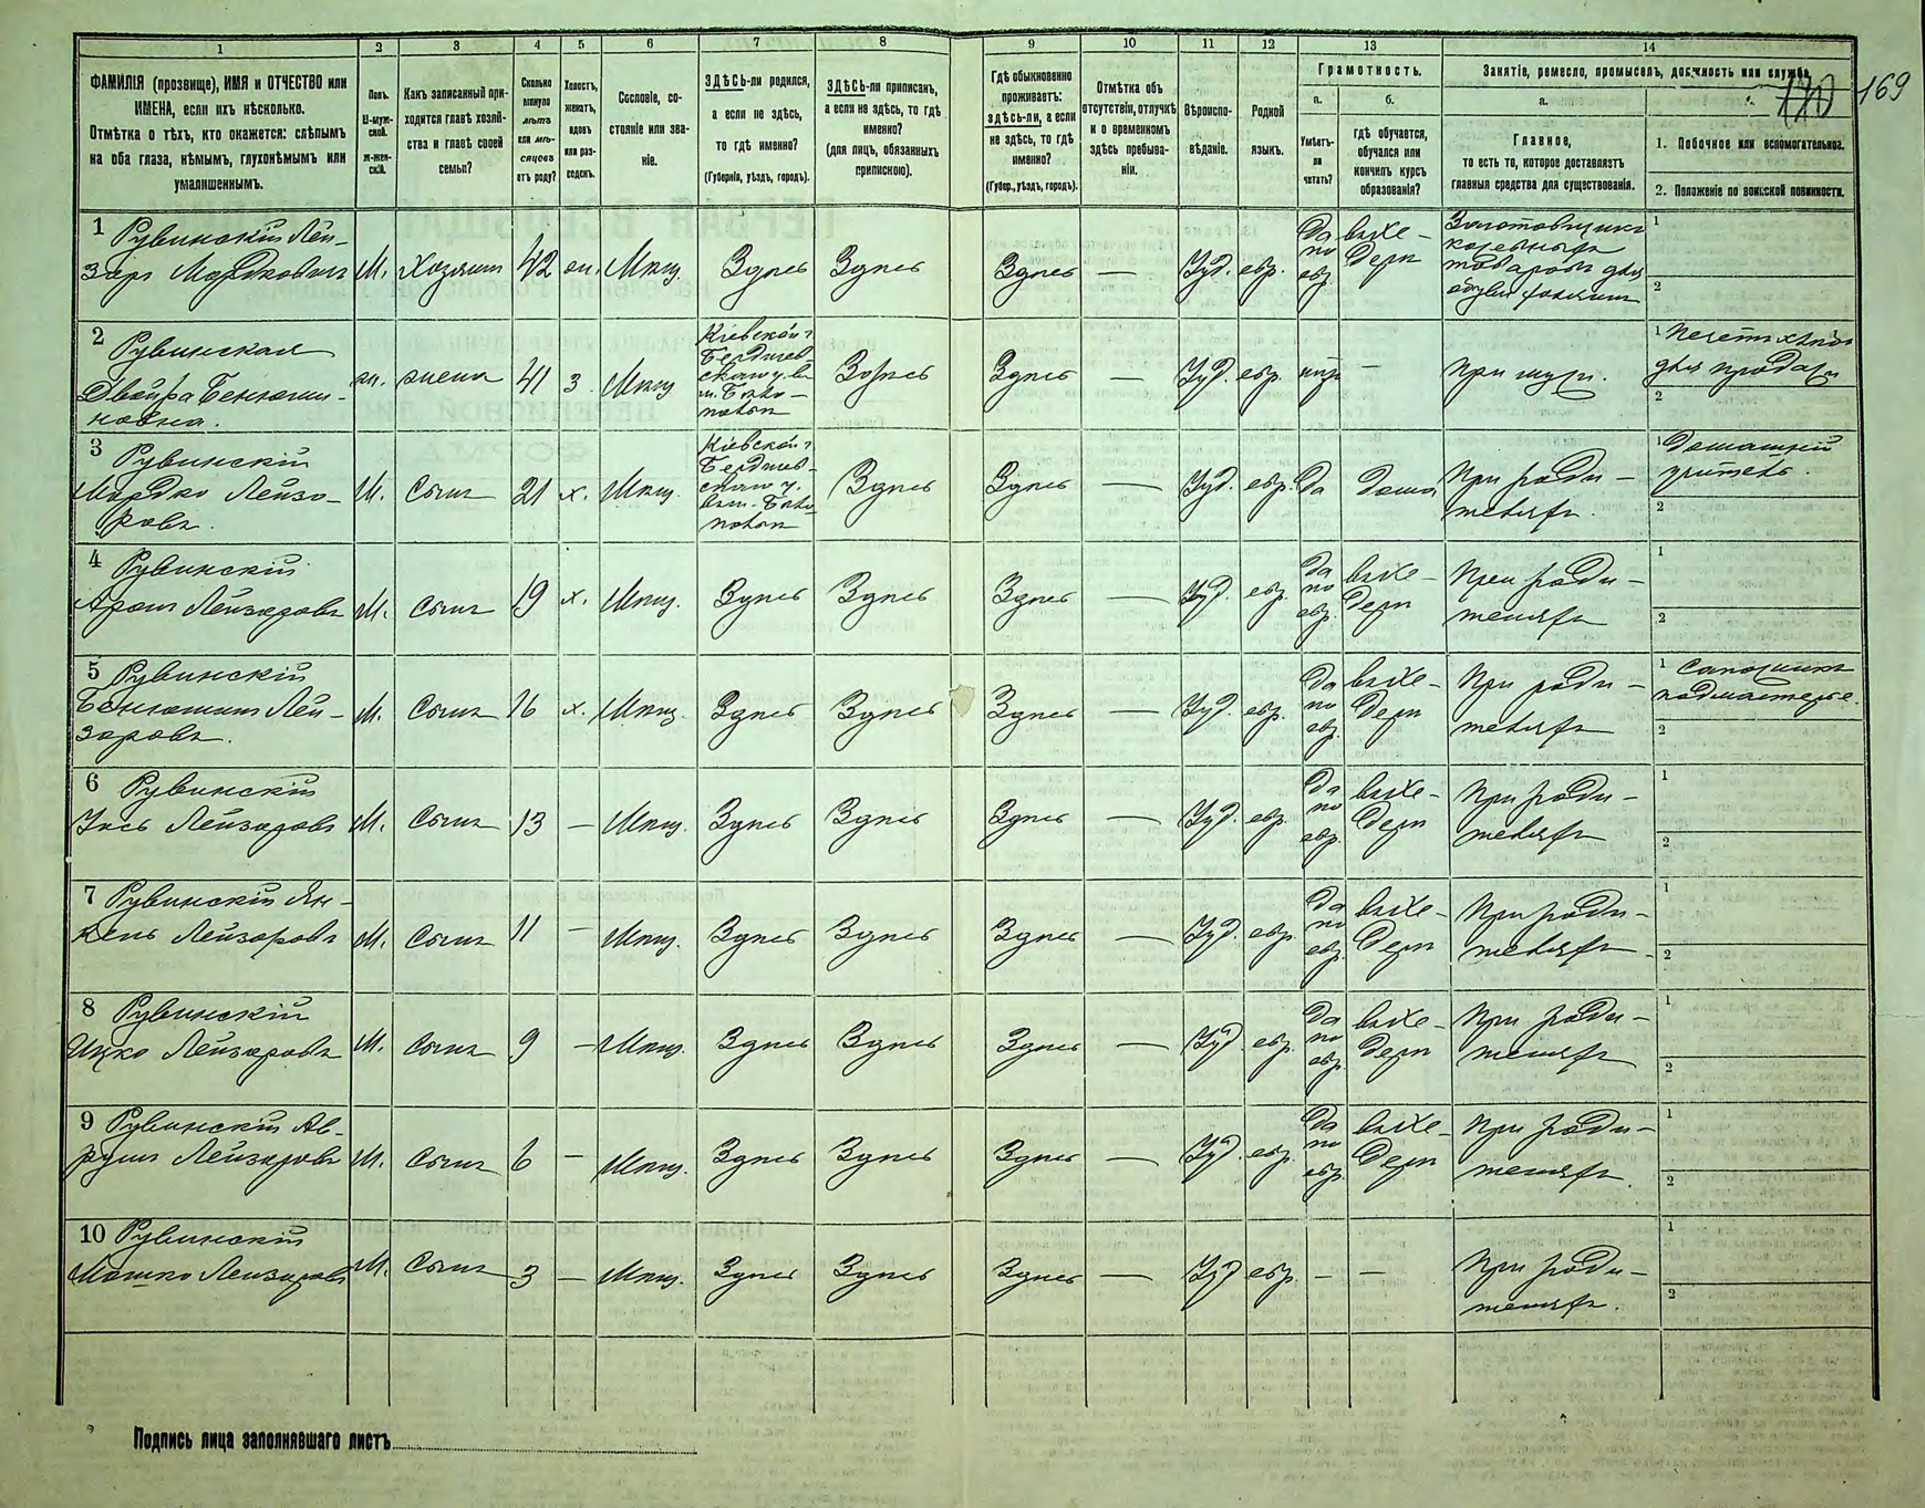 1 2 3 4 5 6 7 8 9 10 11 12 13 14
169
ФАМИЛІЯ (прозвище), ИМЯ и ОТЧЕСТВО или
ИМЕНА, если ихъ нѣсколько.
Отмѣтка о тѣхъ, кто окажется: слѣпымъ
на оба глаза, нѣмымъ, глухонѣмымъ или
умалишеннымъ.
Полъ.
М-муж-
ской.
ж-жен-
скій.
Какъ записанный при-
ходится главѣ хозяй-
ства и главѣ своей
семьи?
Сколько
минуло
лѣтъ
или мѣ-
сяцевъ
отъ роду?
Холостъ,
женатъ,
вдовъ
или раз-
веденъ.
Сословіе, со-
стояніе или зва-
ніе.
ЗДѢСЬ-ли родился,
а если не здѣсь,
то гдѣ именно?
(Губернія, уѣздъ, городъ).
ЗДѢСЬ-ли приписанъ,
а если не здѣсь, то гдѣ
именно?
(для лицъ, обязанныхъ
припискою).
Гдѣ обыкновенно
проживаетъ:
здѣсь-ли, а если
не здѣсь, то гдѣ
именно?
(Губер., уѣздъ, городъ).
Отмѣтка объ
отсутствіи, отлучкѣ
и о временномъ
здѣсь пребыва-
ніи.
Вѣроиспо-
вѣданіе.
Родной
языкъ.
Грамотность.
а.
Умѣетъ-
ли
читать?
б.
гдѣ обучается,
обучался или
кончилъ курсъ
образованія?
Занятіе, ремесло, промыселъ, должность или служба.
а.
Главное,
то есть то, которое доставляетъ
главныя средства для существованія.
1. Побочное или вспомогательное.
2. Положеніе по воинской повинности.
1 Рувинскій Лей-
заръ Мордковичъ
М. Хозяинъ 42 жен. Мѣщ. Здѣсь Здѣсь
Здѣсь — Іуд. евр.
Да
по
евр.
въ хе-
дерѣ
Заготовщикъ
кожевныхъ
товаровъ для
обуви
1
2
2 Рувинская
Двойра Беньями-
новна.
ж. жена 41 з. Мѣщ.
Кіевской г.
Бердичев-
скаго у. въ
м. Бѣло-
полѣи
Здѣсь
Здѣсь — Іуд. евр. —
При мужѣ.
1 Печетъ хлѣбъ
для продажи
2
3 Рувинскій
Мордко Лейзо-
ровъ.
М. Сынъ 21 х. Мѣщ.
Кіевской г.
Бердичев-
скаго у.
въ м. Бѣло-
полѣи
Здѣсь
Здѣсь — Іуд. евр. Да дома
При роди-
теляхъ.
1 Домашній
учитель.
2
4 Рувинскій
Аронъ Лейзоровъ
М. Сынъ 19 х. Мѣщ. Здѣсь Здѣсь
Здѣсь — Іуд. евр.
Да
по
евр.
въ хе-
дерѣ
При роди-
теляхъ
1
2
5 Рувинскій
Беньяминъ Лей-
зоровъ.
М. Сынъ 16 х. Мѣщ. Здѣсь Здѣсь
Здѣсь — Іуд. евр.
Да
по
евр.
въ хе-
дерѣ
При роди-
теляхъ
1 Сапожникъ
подмастерье.
2
6 Рувинскій
Лейзоровъ
М. Сынъ 13 — Мѣщ. Здѣсь Здѣсь
Здѣсь — Іуд. евр.
Да
по
евр.
въ хе-
дерѣ
При роди-
теляхъ
1
2
7 Рувинскій Ян-
кель Лейзоровъ
М. Сынъ 11 — Мѣщ. Здѣсь Здѣсь
Здѣсь — Іуд. евр.
Да
по
евр.
въ хе-
дерѣ
При роди-
теляхъ
1
2
8 Рувинскій
Ицко Лейзоровъ
М. Сынъ 9 — Мѣщ. Здѣсь Здѣсь
Здѣсь — Іуд. евр.
Да
по
евр.
въ хе-
дерѣ
При роди-
теляхъ
1
2
9 Рувинскій Ав-
румъ Лейзоровъ
М. Сынъ 6 — Мѣщ. Здѣсь Здѣсь
Здѣсь — Іуд. евр.
Да
по
евр.
въ хе-
дерѣ
При роди-
теляхъ.
1
2
10 Рувинскій
Мошко Лейзоровъ
М. Сынъ 3 — Мѣщ. Здѣсь Здѣсь
Здѣсь — Іуд. евр. — —
При роди-
теляхъ.
1
2
Подпись лица заполнявшаго листъ